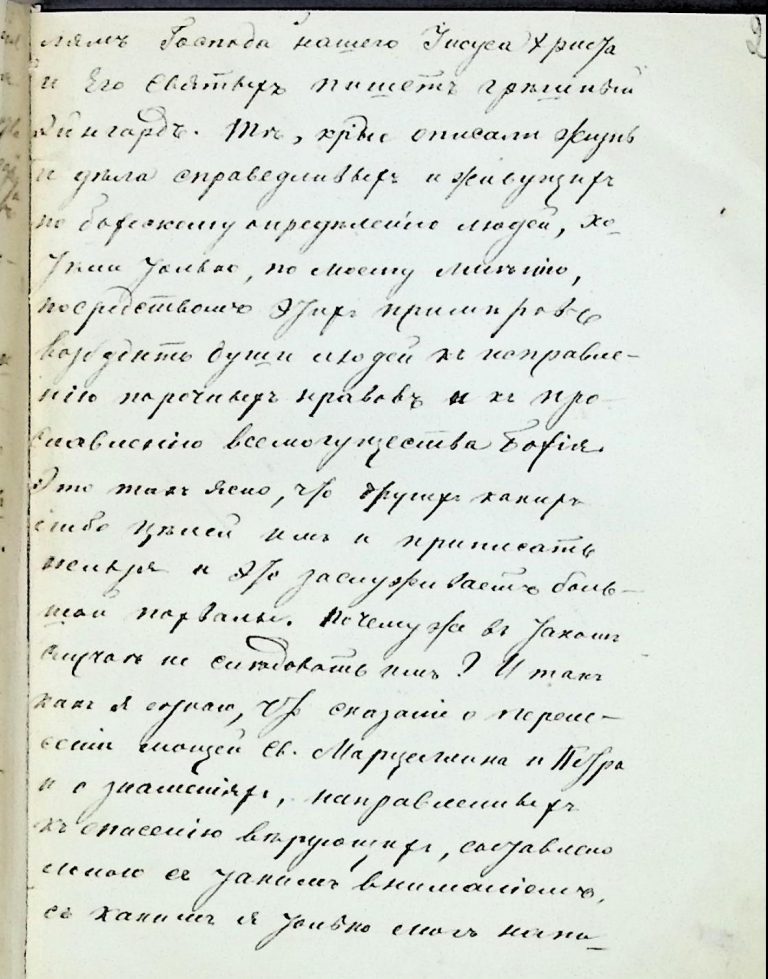 2
лямъ Господа нашего Іисуса Христа
и Его святыхъ пишетъ грѣшный
Эйнгардъ. Тѣ, крые описали жизнь
и дѣла справедливыхъ и живущихъ
по божескому опредѣленію людей, хо-
тѣли только, по моему мнѣнію,
посредствомъ этихъ примѣровъ
возбудить души людей къ исправле-
нію порочныхъ нравовъ и къ про-
славленію всемогущества Божія.
Это такъ ясно, что другихъ какихъ
либо цѣлей имъ и приписать
нельзя и это заслуживаетъ боль-
шой похвалы. Почему же въ такомъ
случаѣ не слѣдовать имъ? И такъ
какъ я сознаю, что сказаніе о перене-
сеніи мощей св. Марцеллина и Петра
и о знаменіяхъ, направленныхъ
къ спасенію вѣрующихъ, составлено
мною съ такимъ вниманіемъ,
съ какимъ я только могъ напи-